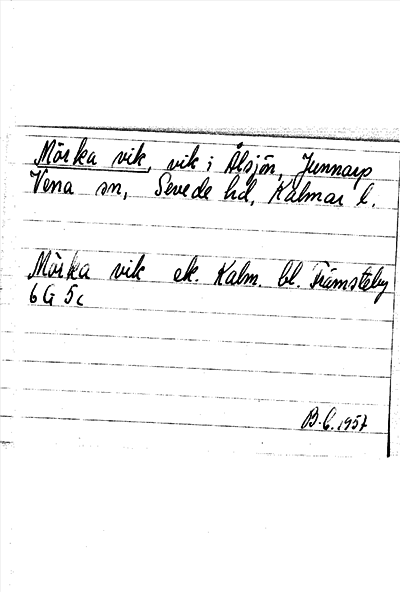 Mörka vik, vik i Ålsjön, Junnarp
Vena sn, Sevede hd, Kalmar l.
Mörka vik ek. Kalm. bl. Främsteby
6G 5c
B. L. 1957